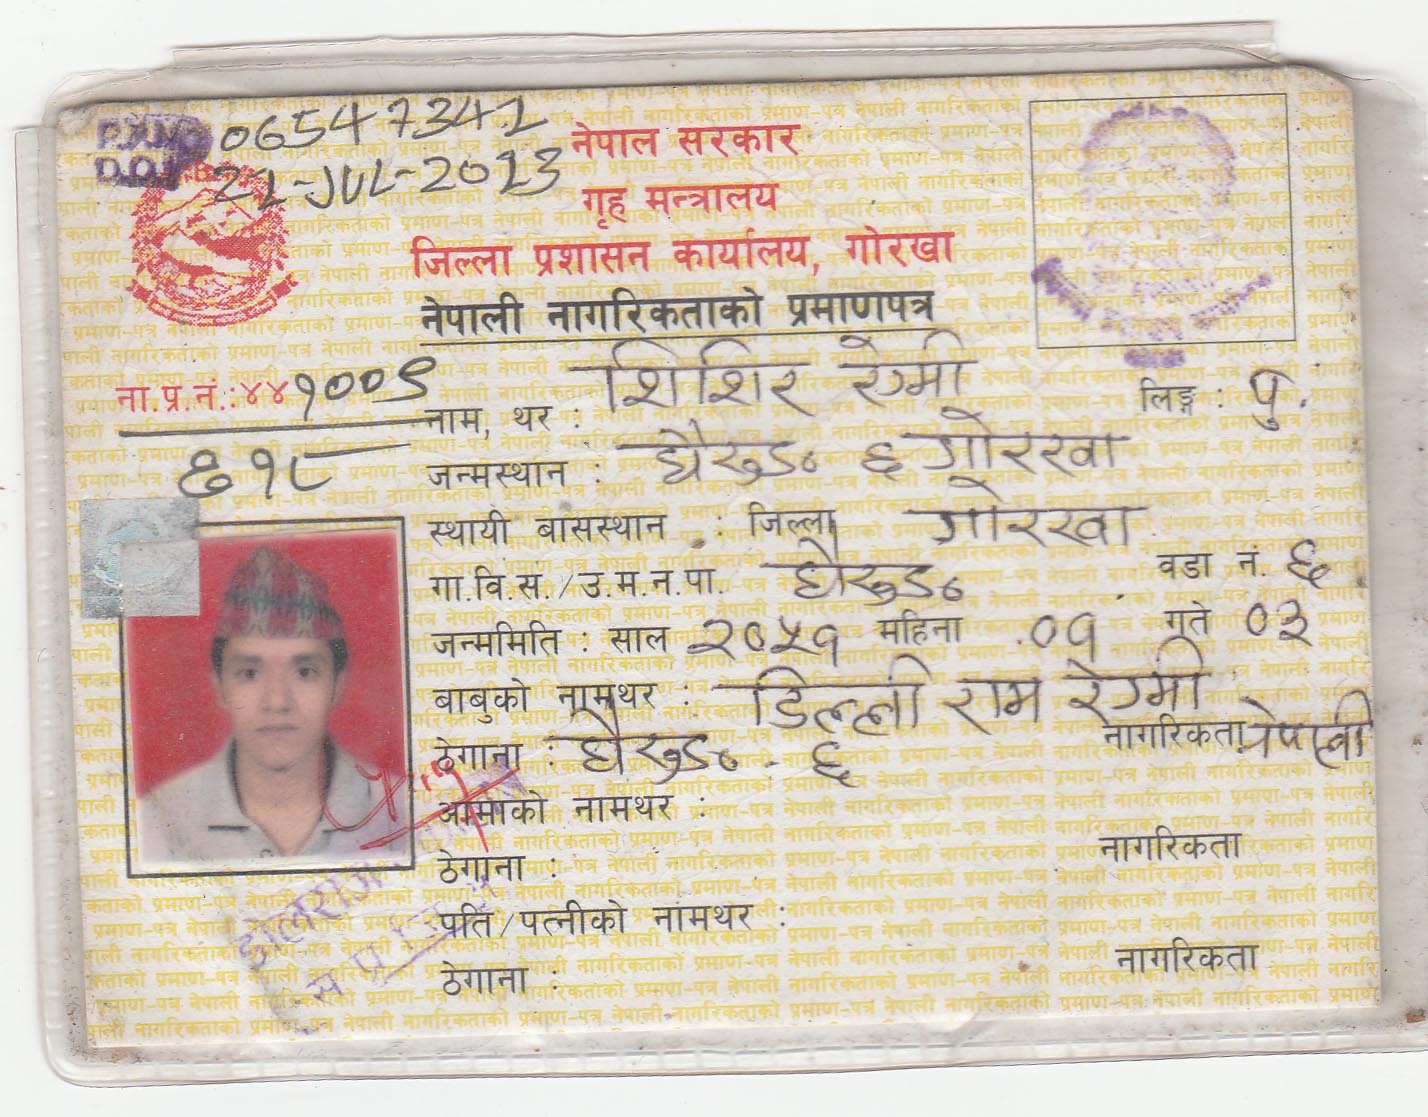 P.P.NO 06547341
D.O.I 21-JUL-2013
नेपाल सरकार
गृह मन्त्रालय
जिल्ला प्रशासन कार्यालय, गोरखा
नेपाली नागरिकताको प्रमाणपत्र
ना.प्र.नं.:४४१००९
६१८
नाम, थर : शिशिर रेग्मी लिङ्ग : पु.
जन्मस्थान : घैरुङ॰ ६ गोरखा
स्थायी बासस्थान : जिल्ला गोरखा
गा.वि.स./उ.म.न.पा. घैरुङ॰ वडा नं. ६
जन्ममिति : साल २०५१ महिना ०१ गते ०३
बाबुको नामथर : डिल्ली राम रेग्मी
ठेगाना : घैरुङ॰ - ६ नागरिकता नेपाली
आमाको नामथर :
ठेगाना : नागरिकता
पति/पत्नीको नामथर :
ठेगाना : नागरिकता